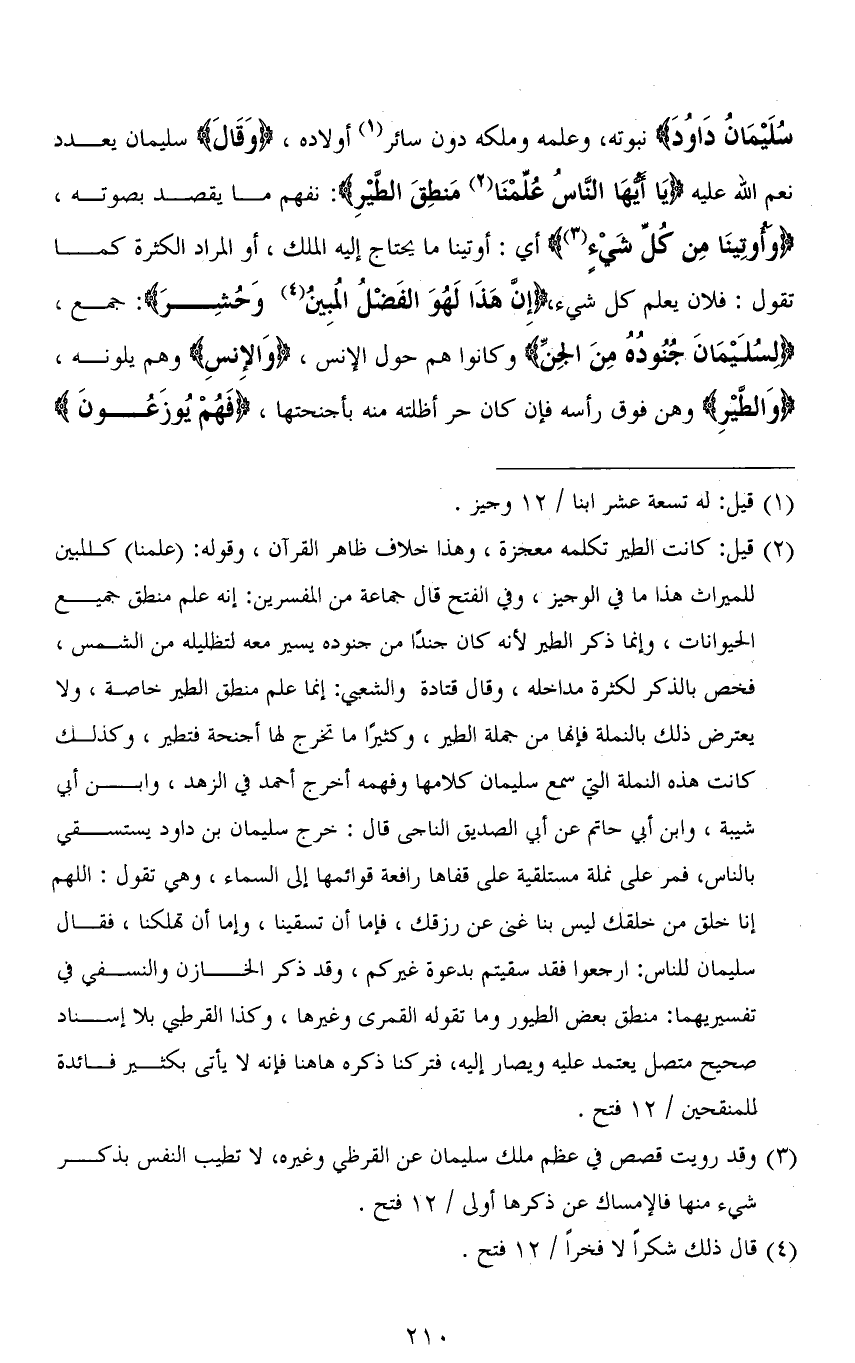 سُلَيْمَانُ دَاوُدَ﴾ نبوته، وعلمه وملكه دون سائر(١) أولاده ، ﴿وَقَالَ﴾ سليمان يعدد
نعم الله عليه ﴿يَا أَيُّهَا النَّاسُ عُلِّمْنَا(٢) مَنطِقَ الطَّيْرِ﴾: نفهم ما يقصد بصوته ،
﴿وَأُوتِينَا مِن كُلِّ شَيْءٍ(٣)﴾ أي : أوتينا ما يحتاج إليه الملك ، أو المراد الكثرة كما
تقول : فلان يعلم كل شيء،﴿إِنَّ هَذَا لَهُوَ الفَضْلُ المُبِينُ(٤) وَحُشِرَ﴾: جمع ،
﴿لِسُلَيْمَانَ جُنُودُهُ مِنَ الجِنِّ﴾ وكانوا هم حول الإنس ، ﴿وَالإِنسِ﴾ وهم يلونه ،
﴿وَالطَّيْرِ﴾ وهن فوق رأسه فإن كان حر أظلته منه بأجنحتها ، ﴿فَهُمْ يُوزَعُونَ ﴾
(١) قيل: له تسعة عشر ابنا / ١٢ وجيز .
(٢) قيل: كانت الطير تكلمه معجزة ، وهذا خلاف ظاهر القرآن ، وقوله: (علمنا) كالمبين
للميراث هذا ما في الوجيز ، وفي الفتح قال جماعة من المفسرين: إنه علم منطق جميع
الحيوانات ، وإنما ذكر الطير لأنه كان جندًا من جنوده يسير معه لتظليله من الشمس ،
فخص بالذكر لكثرة مداخله ، وقال قتادة والشعبي: إنما علم منطق الطير خاصة ، ولا
يعترض ذلك بالنملة فإنها من جملة الطير ، وكثيرًا ما تخرج لها أجنحة فتطير ، وكذلك
كانت هذه النملة التي سمع سليمان كلامها وفهمه أخرج أحمد في الزهد ، وابن أبي
شيبة ، وابن أبي حاتم عن أبي الصديق الناجى قال : خرج سليمان بن داود يستسقي
بالناس، فمر على نملة مستلقية على قفاها رافعة قوائمها إلى السماء ، وهي تقول : اللهم
إنا خلق من خلقك ليس بنا غنى عن رزقك ، فإما أن تسقينا ، وإما أن تهلكنا ، فقال
سليمان للناس: ارجعوا فقد سقيتم بدعوة غيركم ، وقد ذكر الخازن والنسفي في
تفسيريهما: منطق بعض الطيور وما تقوله القمرى وغيرها ، وكذا القرطبي بلا إسناد
صحيح متصل يعتمد عليه ويصار إليه، فتركنا ذكره هاهنا فإنه لا يأتى بكثير فائدة
للمنقحين / ١٢ فتح .
(٣) وقد رويت قصص في عظم ملك سليمان عن القرظي وغيره، لا تطيب النفس بذكر
شيء منها فالإمساك عن ذكرها أولى / ١٢ فتح .
(٤) قال ذلك شكراً لا فخراً / ١٢ فتح .
٢١٠